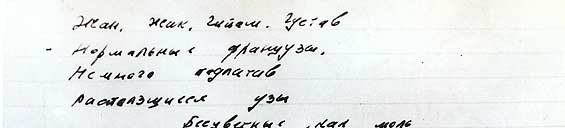 Жан, Жак, Гийом, Густав
- Нормальные французы,
Немного подлатав
Расползшиеся узы
Бесцветные, как моль